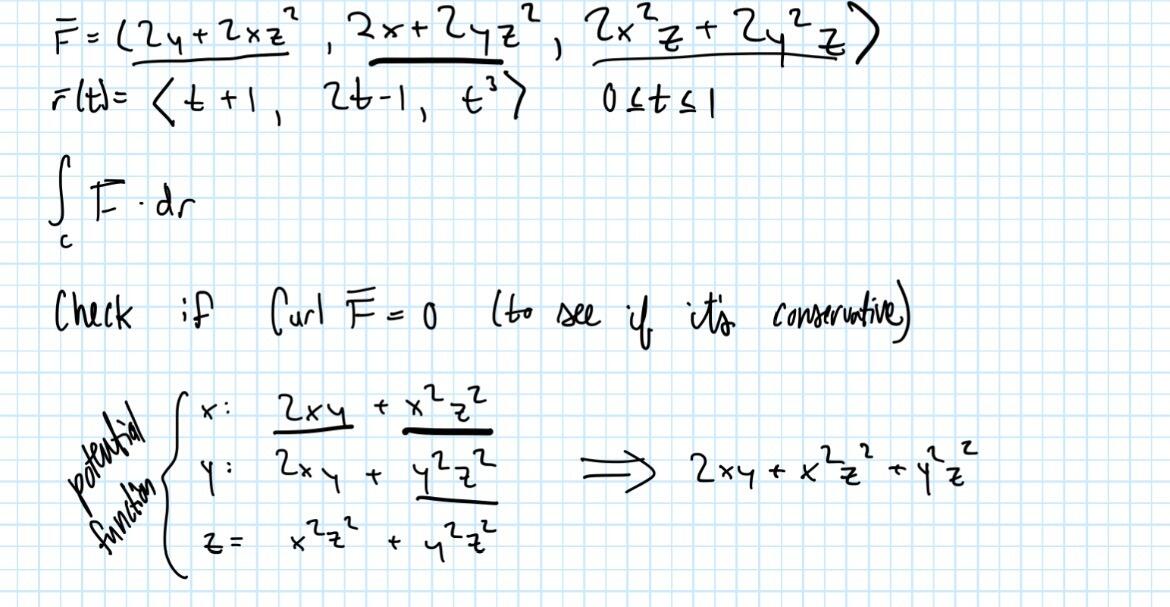 F̅ = (2y + 2xz², 2x + 2yz², 2x²z + 2y²z⟩
r̅(t) = ⟨t + 1, 2t - 1, t³⟩ 0 ≤ t ≤ 1
∫_c F̅ · dr
Check if Curl F̅ = 0 (to see if it's conservative)
potential function { x: 2xy + x²z²
y: 2xy + y²z² ⟹ 2xy + x²z² + y²z²
z = x²z² + y²z²